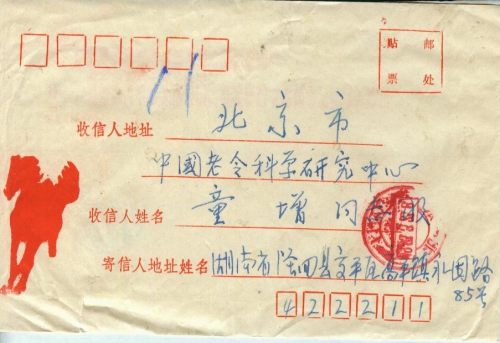 贴 邮
票 处
收信人地址 北京市
中國老令科学研究中心
收信人姓名 童增同志收
寄信人地址姓名 湖南省隆回县 高平镇 固路
85号
422211